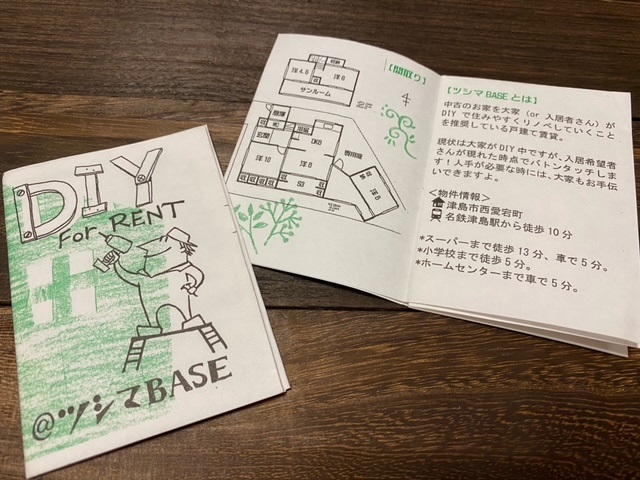 DIY
For RENT
@ツシマBASE
【間取り】
洋4.5
洋6
サンルーム
玄関
洋10
DK8
洋8
洋6
【ツシマBASEとは】
中古のお家を大家（or 入居者さん）が
DIYで住みやすくリノベしていくこと
を推奨している戸建て賃貸。
現状は大家がDIY中ですが、入居希望者
さんが現れた時点でバトンタッチしま
す！人手が必要な時には、大家もお手伝
いできますよ。
＜物件情報＞
津島市西愛宕町
名鉄津島駅から徒歩10分
*スーパーまで徒歩13分、車で5分。
*小学校まで徒歩5分。
*ホームセンターまで車で5分。